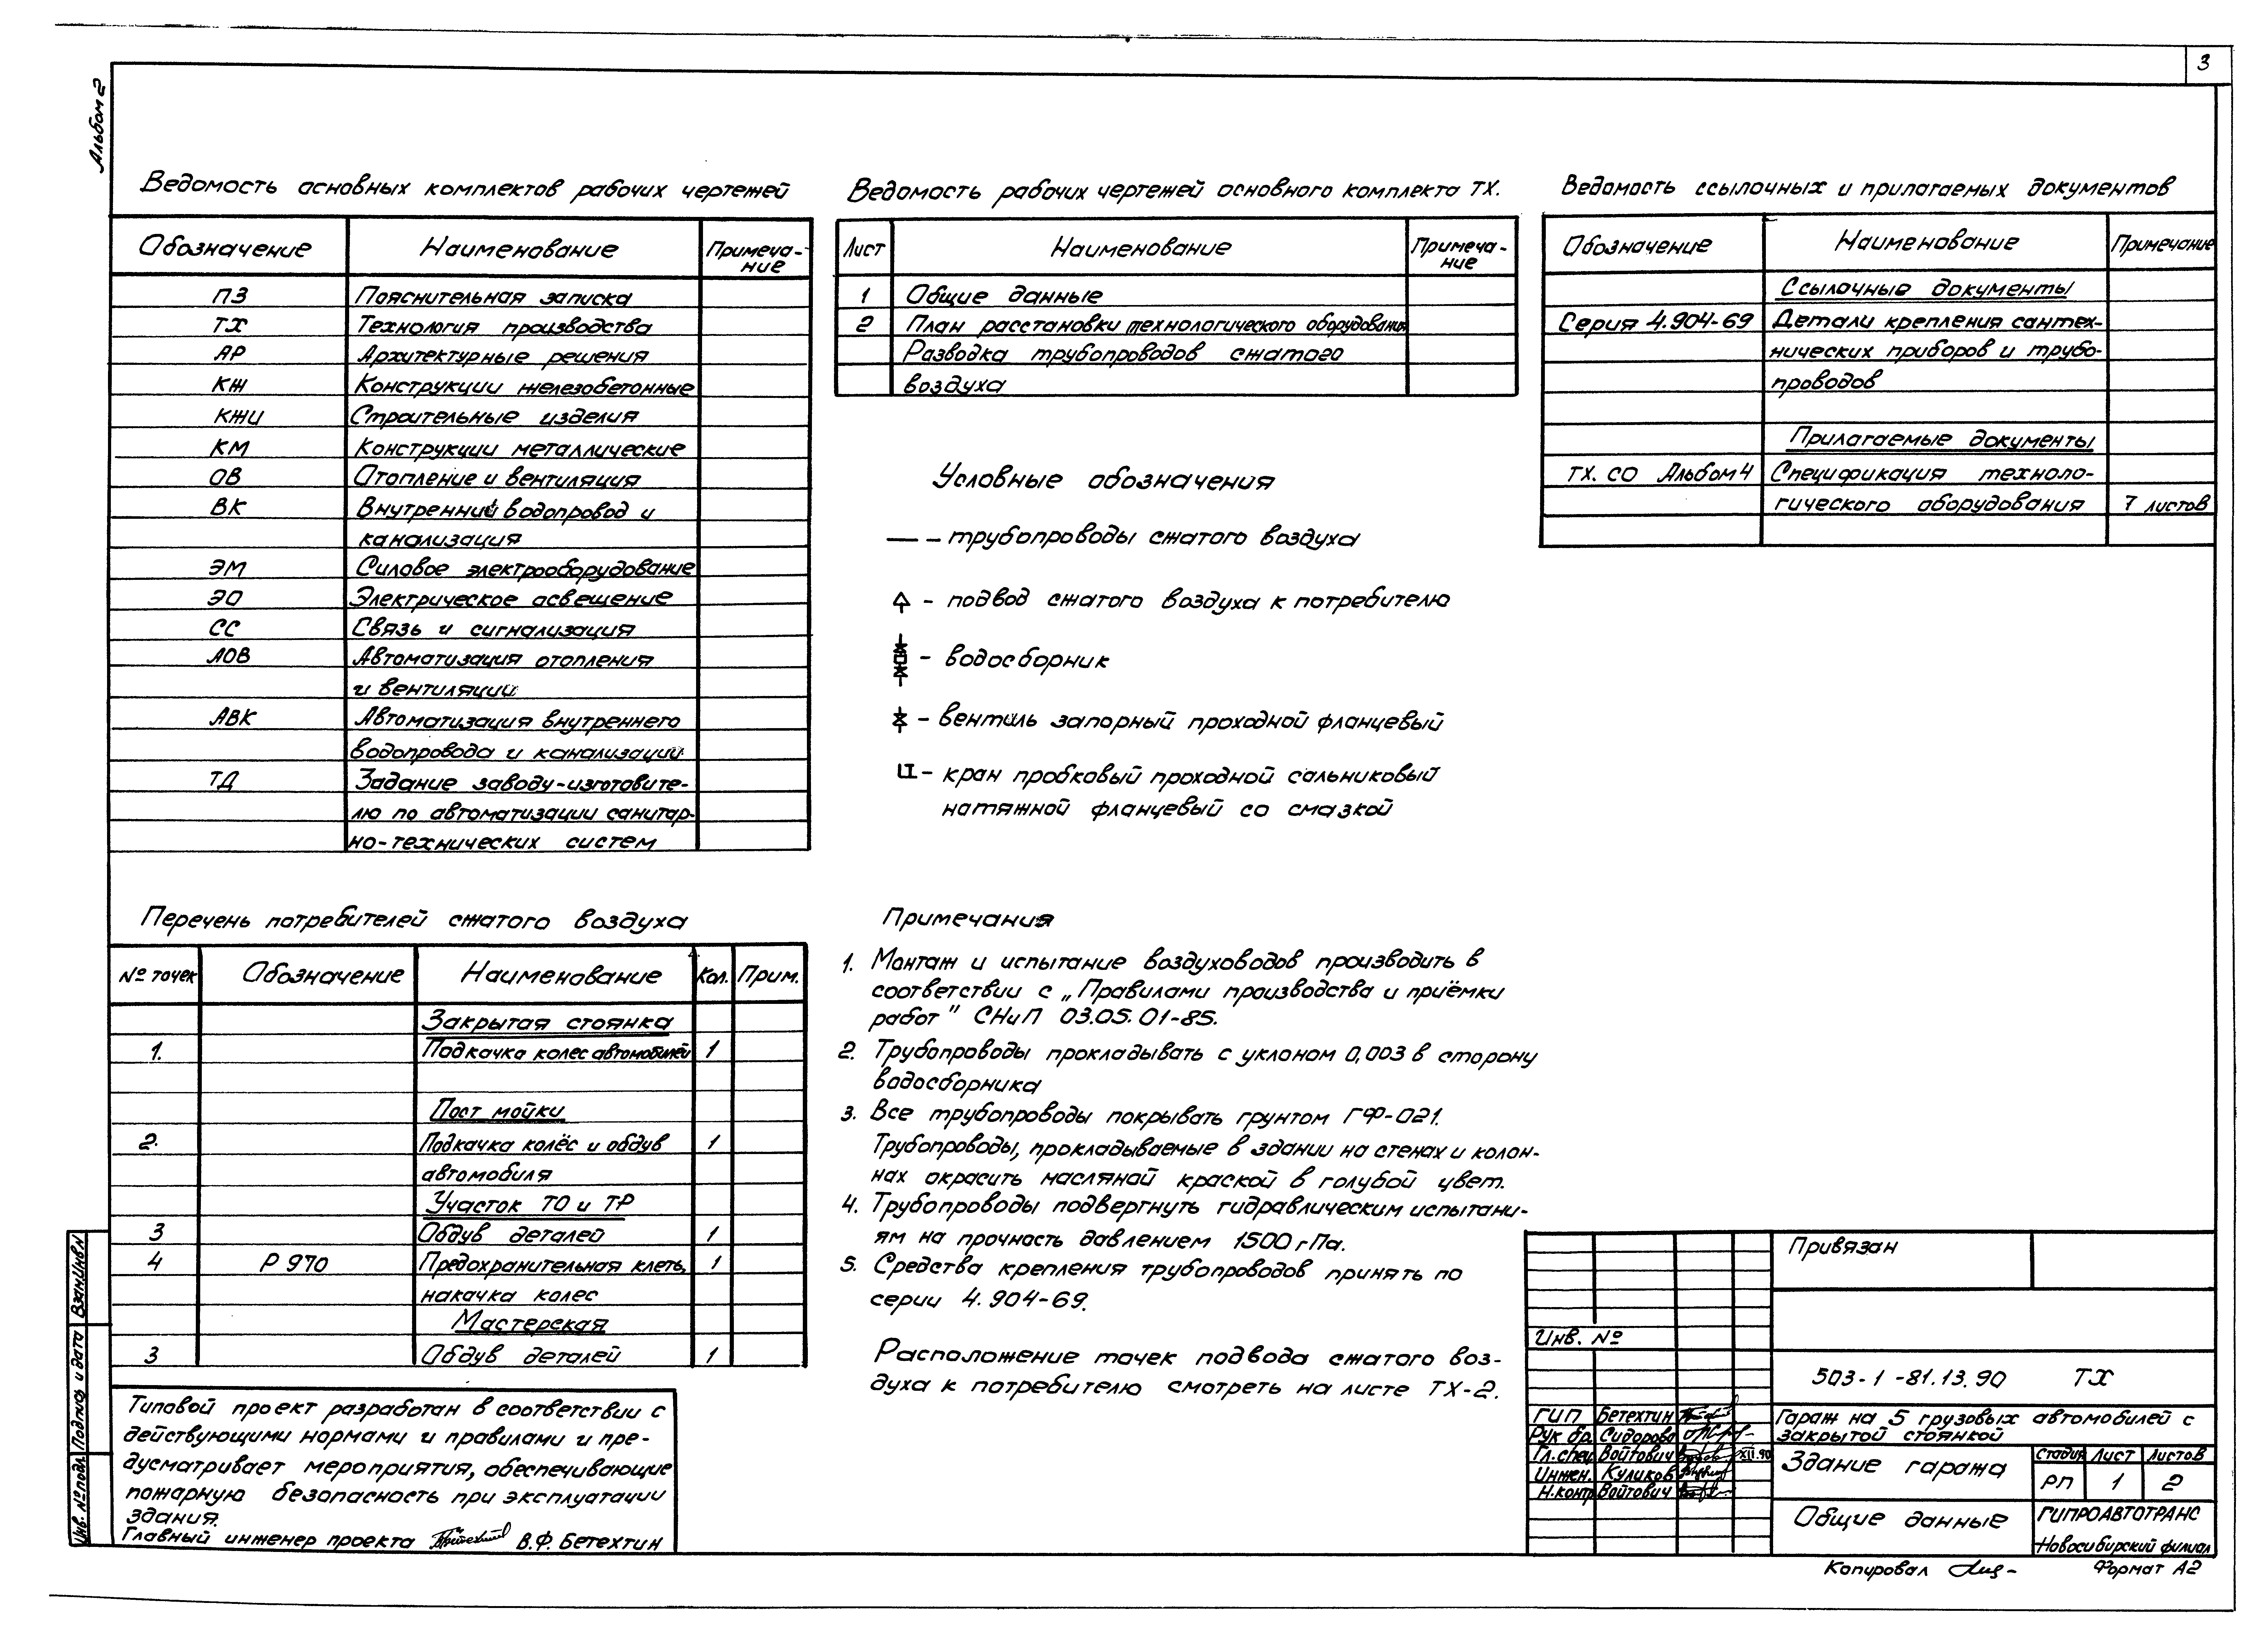 3
Альбом 2
Ведомость основных комплектов рабочих чертежей
Обозначение Наименование Примеча-
ние
ПЗ Пояснительная записка
ТХ Технология производства
АР Архитектурные решения
КЖ Конструкции железобетонные
КЖИ Строительные изделия
КМ Конструкции металлические
ОВ Отопление и вентиляция
ВК Внутренний водопровод и
канализация
ЭМ Силовое электрооборудование
ЭО Электрическое освещение
СС Связь и сигнализация
АОВ Автоматизация отопления
и вентиляции
АВК Автоматизация внутреннего
водопровода и канализации
ТД Задание заводу-изготовите-
лю по автоматизации санитар-
но-технических систем
Ведомость рабочих чертежей основного комплекта ТХ.
Лист Наименование Примеча-
ние
1 Общие данные
2 План расстановки технологического оборудования
Разводка трубопроводов сжатого
воздуха
Ведомость ссылочных и прилагаемых документов
Обозначение Наименование Примечание
Ссылочные документы
Серия 4.904-69 Детали крепления сантех-
нических приборов и трубо-
проводов
Прилагаемые документы
ТХ. СО Альбом 4 Спецификация техноло-
гического оборудования 7 листов
Условные обозначения
— – трубопроводы сжатого воздуха
– подвод сжатого воздуха к потребителю
– водосборник
– вентиль запорный проходной фланцевый
– кран пробковый проходной сальниковый
натяжной фланцевый со смазкой
Перечень потребителей сжатого воздуха
№ точек Обозначение Наименование Кол. Прим.
Закрытая стоянка
1. Подкачка колес автомобилей 1
Пост мойки
2. Подкачка колёс и обдув 1
автомобиля
Участок ТО и ТР
3 Обдув деталей 1
4 Р 970 Предохранительная клеть, 1
накачка колес
Мастерская
3 Обдув деталей 1
Примечания
1. Монтаж и испытание воздуховодов производить в
соответствии с „Правилами производства и приёмки
работ" СНиП 03.05.01-85.
2. Трубопроводы прокладывать с уклоном 0,003 в сторону
водосборника
3. Все трубопроводы покрывать грунтом ГФ-021.
Трубопроводы, прокладываемые в здании на стенах и колон-
нах окрасить масляной краской в голубой цвет.
4. Трубопроводы подвергнуть гидравлическим испытани-
ям на прочность давлением 1500 гПа.
5. Средства крепления трубопроводов принять по
серии 4.904-69.
Расположение точек подвода сжатого воз-
духа к потребителю смотреть на листе ТХ-2.
Типовой проект разработан в соответствии с
действующими нормами и правилами и пре-
дусматривает мероприятия, обеспечивающие
пожарную безопасность при эксплуатации
здания.
Главный инженер проекта В.Ф. Бетехтин
Взам.Инв.N
Подпись и дата
Инв. № подл.
Привязан
Инв. №
503-1-81.13.90 ТХ
ГИП Бетехтин
Рук бр. Сидорова
Гл.спец Войтович XII.90
Инжен. Куликов
Н.контр Войтович
Гараж на 5 грузовых автомобилей с
закрытой стоянкой
Здание гаража
Стадия Лист Листов
РП 1 2
Общие данные
ГИПРОАВТОТРАНС
Новосибирский филиал
Копировал Формат А2